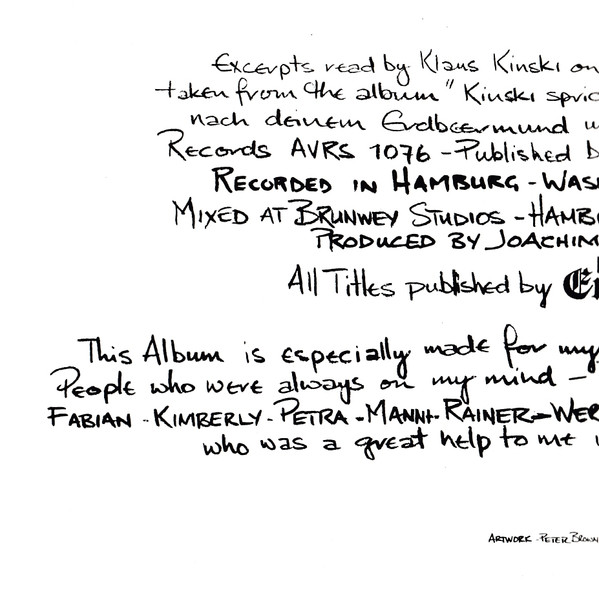 Excerpts read by Klaus Kinski on
taken from the album "Kinski spric
nach deinem Erdbeermund
Records AVRS 1076 - Published
RECORDED IN HAMBURG - WAS
MIXED AT BRUNWEY STUDIOS - HAMB
PRODUCED BY JOACHIM
All Titles published by
This Album is especially made for my
People who were always on my mind -
FABIAN - KIMBERLY - PETRA - MANNI - RAINER - WER
who was a great help to me
ARTWORK - PETER BROWN